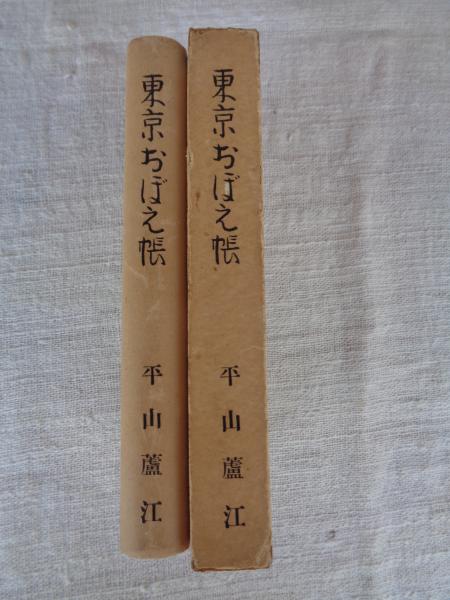 東京おぼえ帳
平山蘆江
東京おぼえ帳
平山蘆江